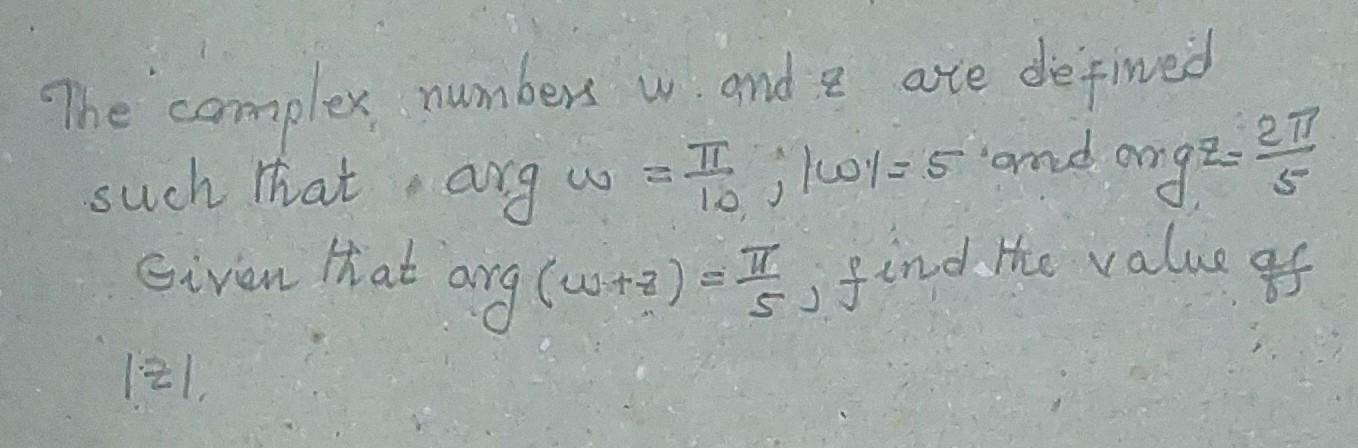 The complex numbers w and z are defined
such that arg w = π/10, |w| = 5 and arg z = 2π/5
Given that arg (w+z) = π/5, find the value of
|z|.